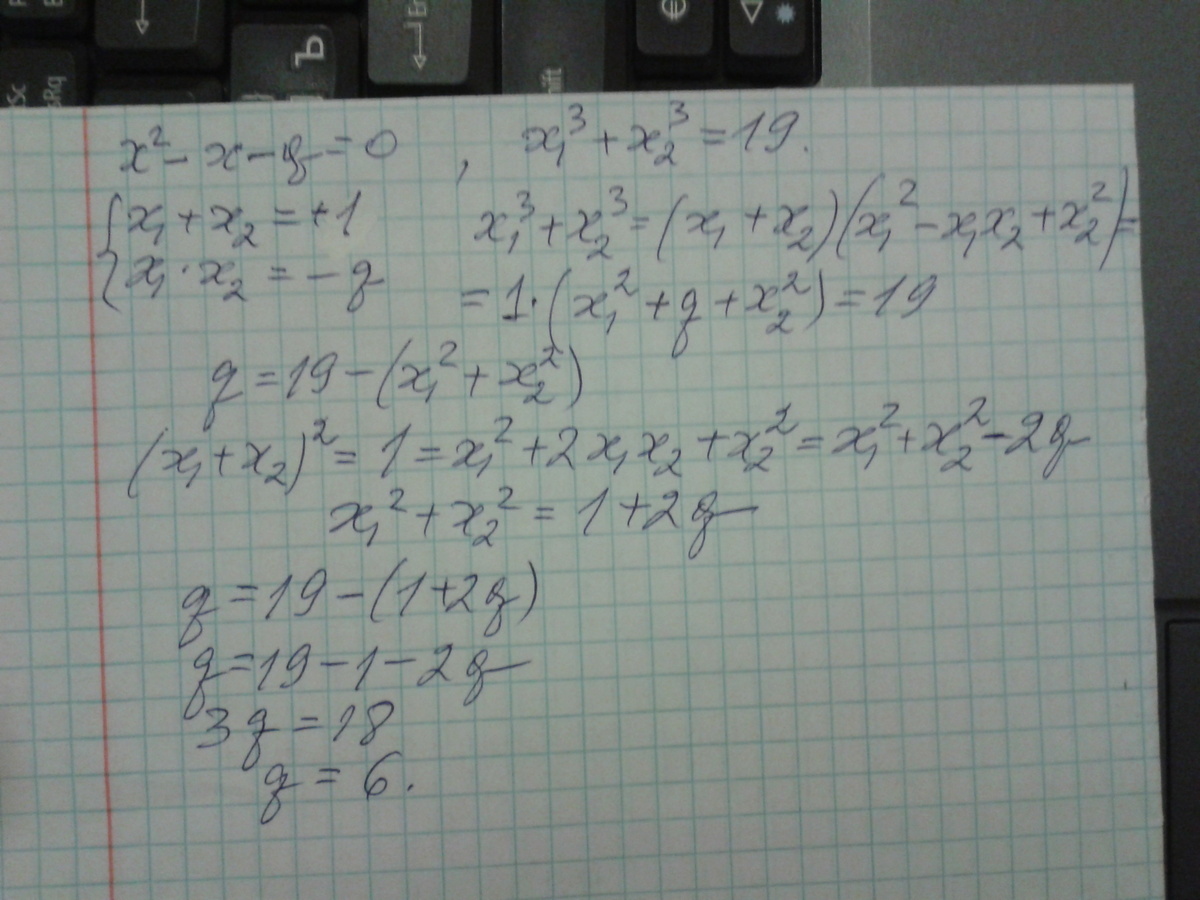 x² - x - q = 0 , x₁³ + x₂³ = 19.
{ x₁ + x₂ = +1
{ x₁ · x₂ = - q
x₁³ + x₂³ = (x₁ + x₂)(x₁² - x₁x₂ + x₂²) =
= 1 · (x₁² + q + x₂²) = 19
q = 19 - (x₁² + x₂²)
(x₁ + x₂)² = 1 = x₁² + 2x₁x₂ + x₂² = x₁² + x₂² - 2q
x₁² + x₂² = 1 + 2q
q = 19 - (1 + 2q)
q = 19 - 1 - 2q
3q = 18
q = 6.
Ъ